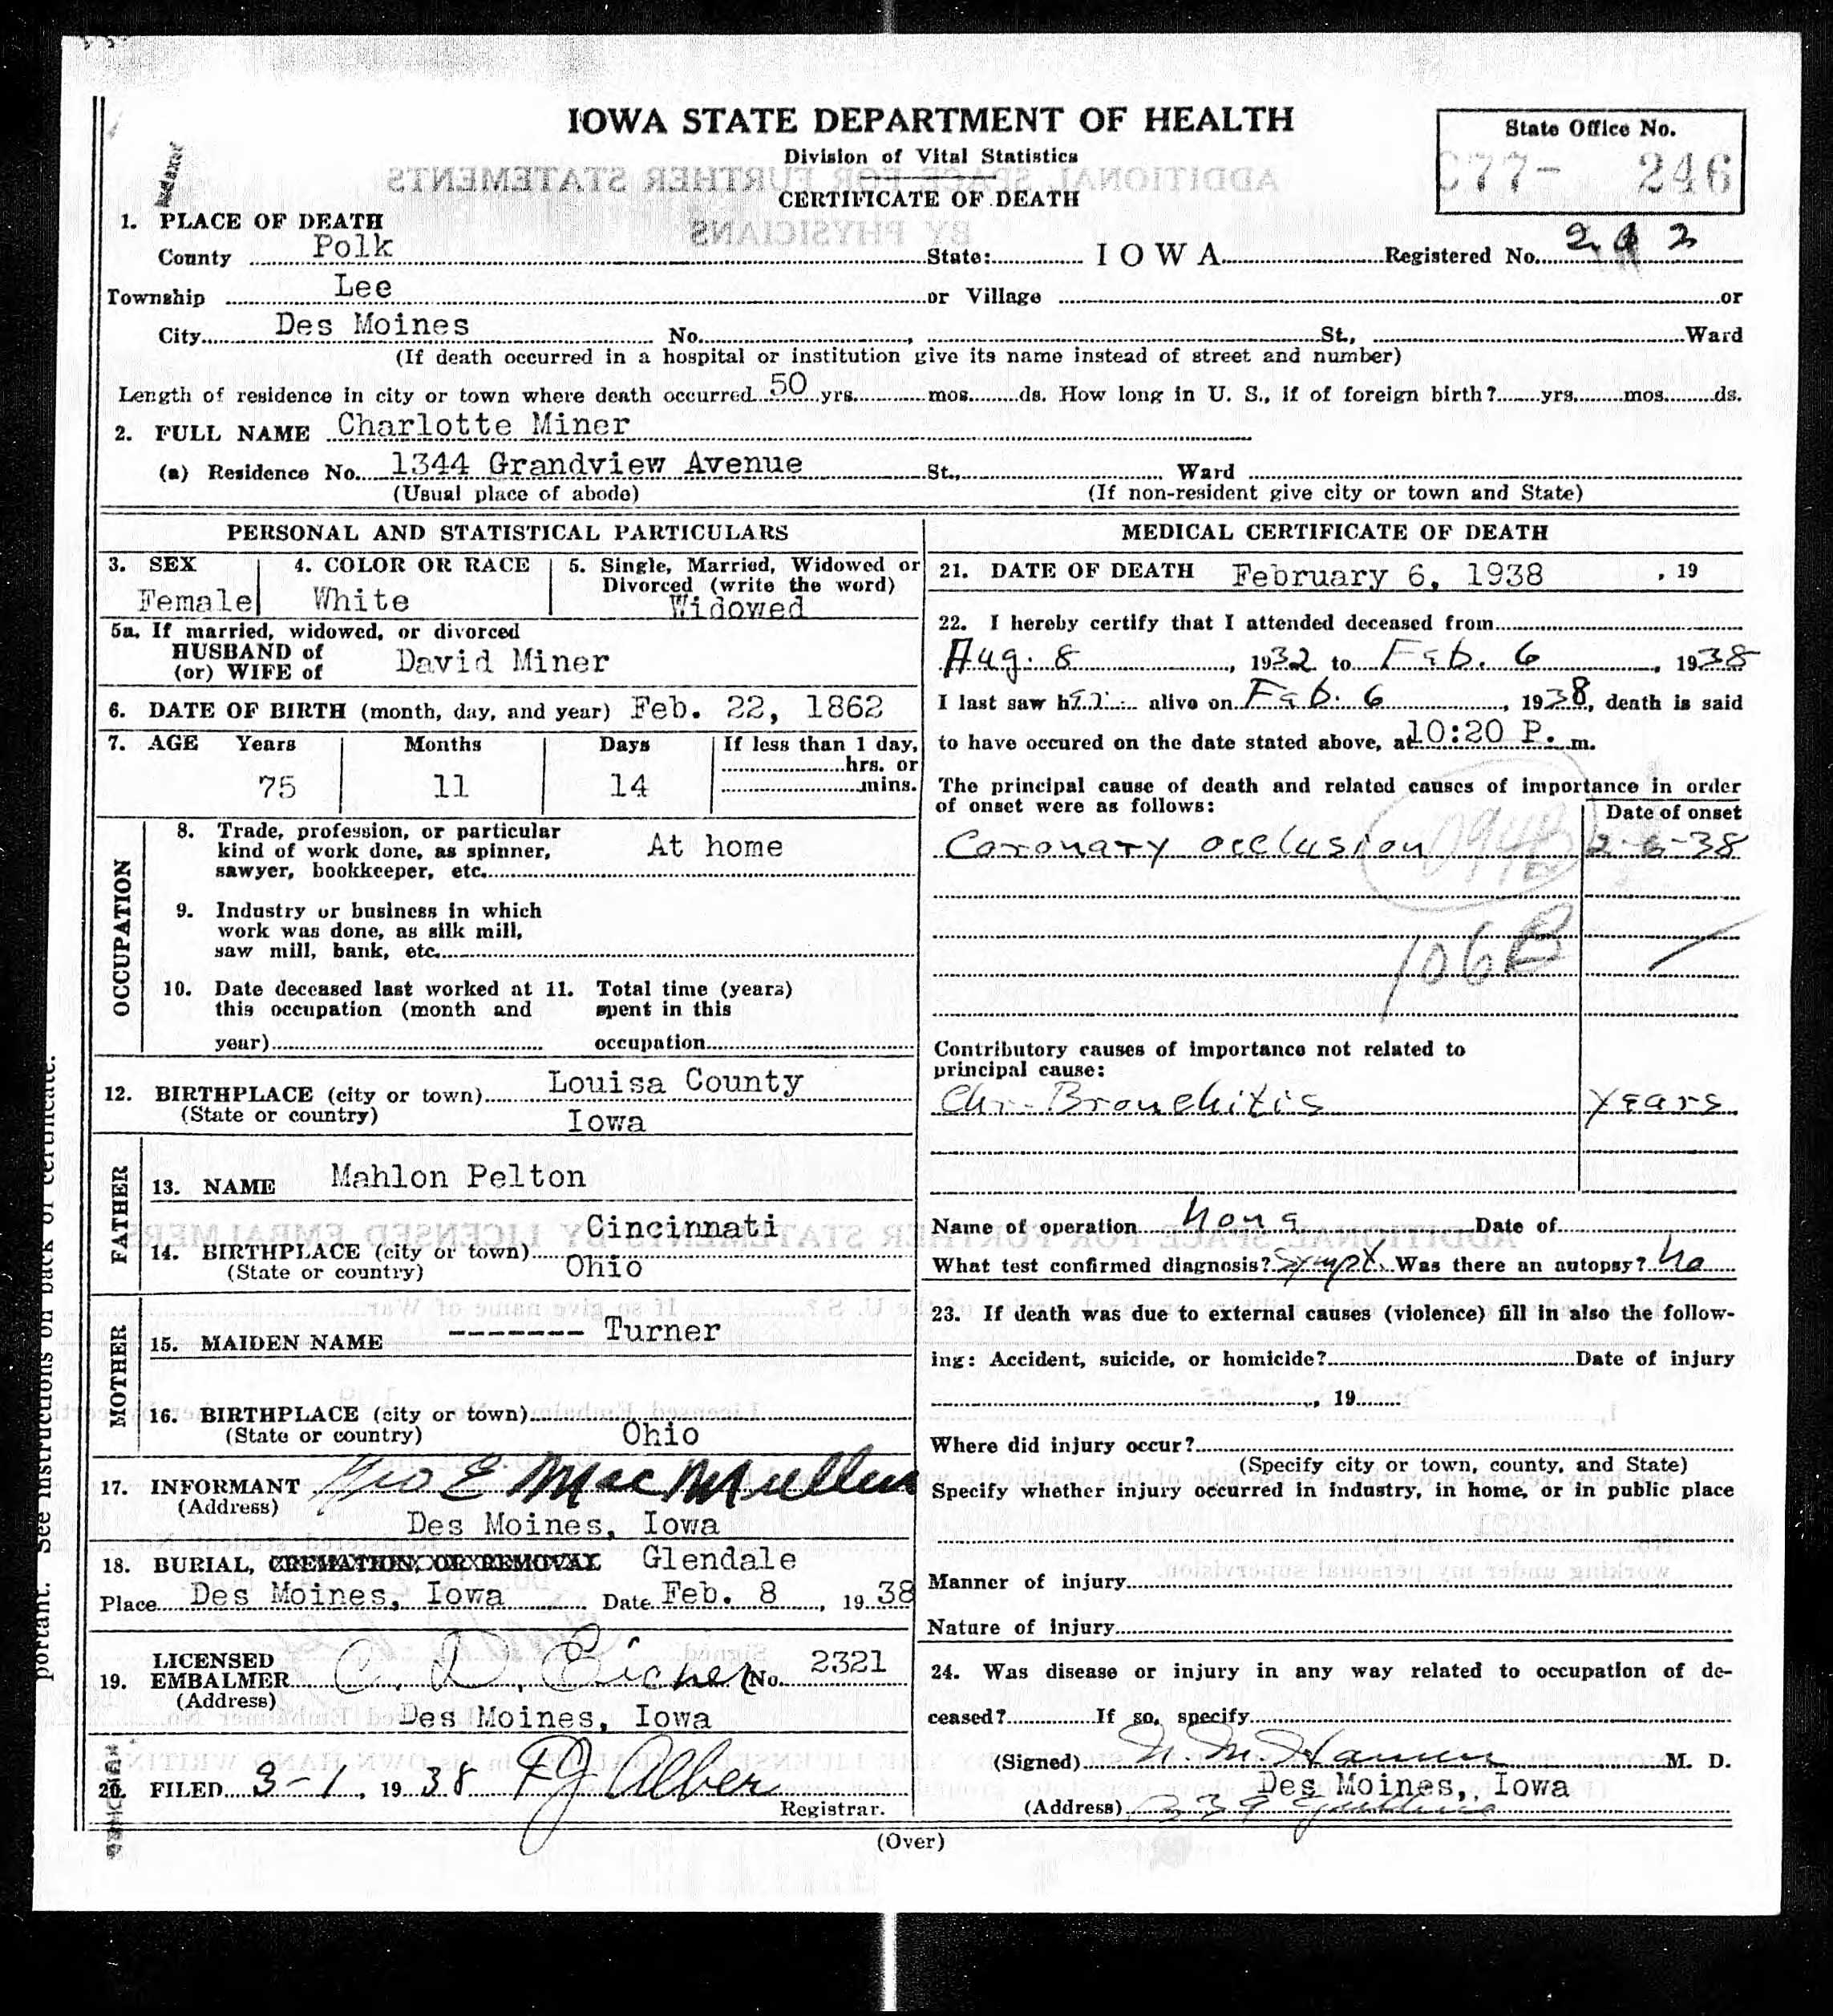 IOWA STATE DEPARTMENT OF HEALTH
Division of Vital Statistics
CERTIFICATE OF DEATH
State Office No.
C77- 246
1. PLACE OF DEATH
County Polk State: IOWA Registered No. 2 2
Township Lee or Village or
City Des Moines No. , St., Ward
(If death occurred in a hospital or institution give its name instead of street and number)
Length of residence in city or town where death occurred 50 yrs. mos. ds. How long in U. S., if of foreign birth? yrs. mos. ds.
2. FULL NAME Charlotte Miner
(a) Residence No. 1344 Grandview Avenue St., Ward
(Usual place of abode) (If non-resident give city or town and State)
PERSONAL AND STATISTICAL PARTICULARS
3. SEX Female
4. COLOR OR RACE White
5. Single, Married, Widowed or
Divorced (write the word)
Widowed
5a. If married, widowed, or divorced
HUSBAND of
(or) WIFE of David Miner
6. DATE OF BIRTH (month, day, and year) Feb. 22, 1862
7. AGE Years Months Days If less than 1 day,
hrs. or
75 11 14 mins.
OCCUPATION
8. Trade, profession, or particular
kind of work done, as spinner,
sawyer, bookkeeper, etc. At home
9. Industry or business in which
work was done, as silk mill,
saw mill, bank, etc.
10. Date deceased last worked at
this occupation (month and
year)
11. Total time (years)
spent in this
occupation
12. BIRTHPLACE (city or town) Louisa County
(State or country) Iowa
FATHER
13. NAME Mahlon Pelton
14. BIRTHPLACE (city or town) Cincinnati
(State or country) Ohio
MOTHER
15. MAIDEN NAME ------- Turner
16. BIRTHPLACE (city or town)
(State or country) Ohio
17. INFORMANT Geo E MacMullen
(Address) Des Moines, Iowa
18. BURIAL, CREMATION, OR REMOVAL Glendale
Place Des Moines, Iowa Date Feb. 8, 1938
19. LICENSED
EMBALMER C. D. Eicher No. 2321
(Address) Des Moines, Iowa
20. FILED 3-1, 1938 F J Alber
Registrar.
MEDICAL CERTIFICATE OF DEATH
21. DATE OF DEATH February 6, 1938 , 19
22. I hereby certify that I attended deceased from
Aug. 8, 1932 to Feb. 6, 1938
I last saw her alive on Feb. 6, 1938, death is said
to have occured on the date stated above, at 10:20 P. m.
The principal cause of death and related causes of importance in order
of onset were as follows: Date of onset
Coronary occlusion 2-6-38
094B
106B
Contributory causes of importance not related to
principal cause:
Chr. Bronchitis years
Name of operation None Date of
What test confirmed diagnosis? Sympt. Was there an autopsy? No
23. If death was due to external causes (violence) fill in also the follow-
ing: Accident, suicide, or homicide? Date of injury
, 19
Where did injury occur?
(Specify city or town, county, and State)
Specify whether injury occurred in industry, in home, or in public place
Manner of injury
Nature of injury
24. Was disease or injury in any way related to occupation of de-
ceased? If so, specify
(Signed) M. D.
Des Moines, Iowa
(Address)
(Over)
portant. See instructions on back of certificate.